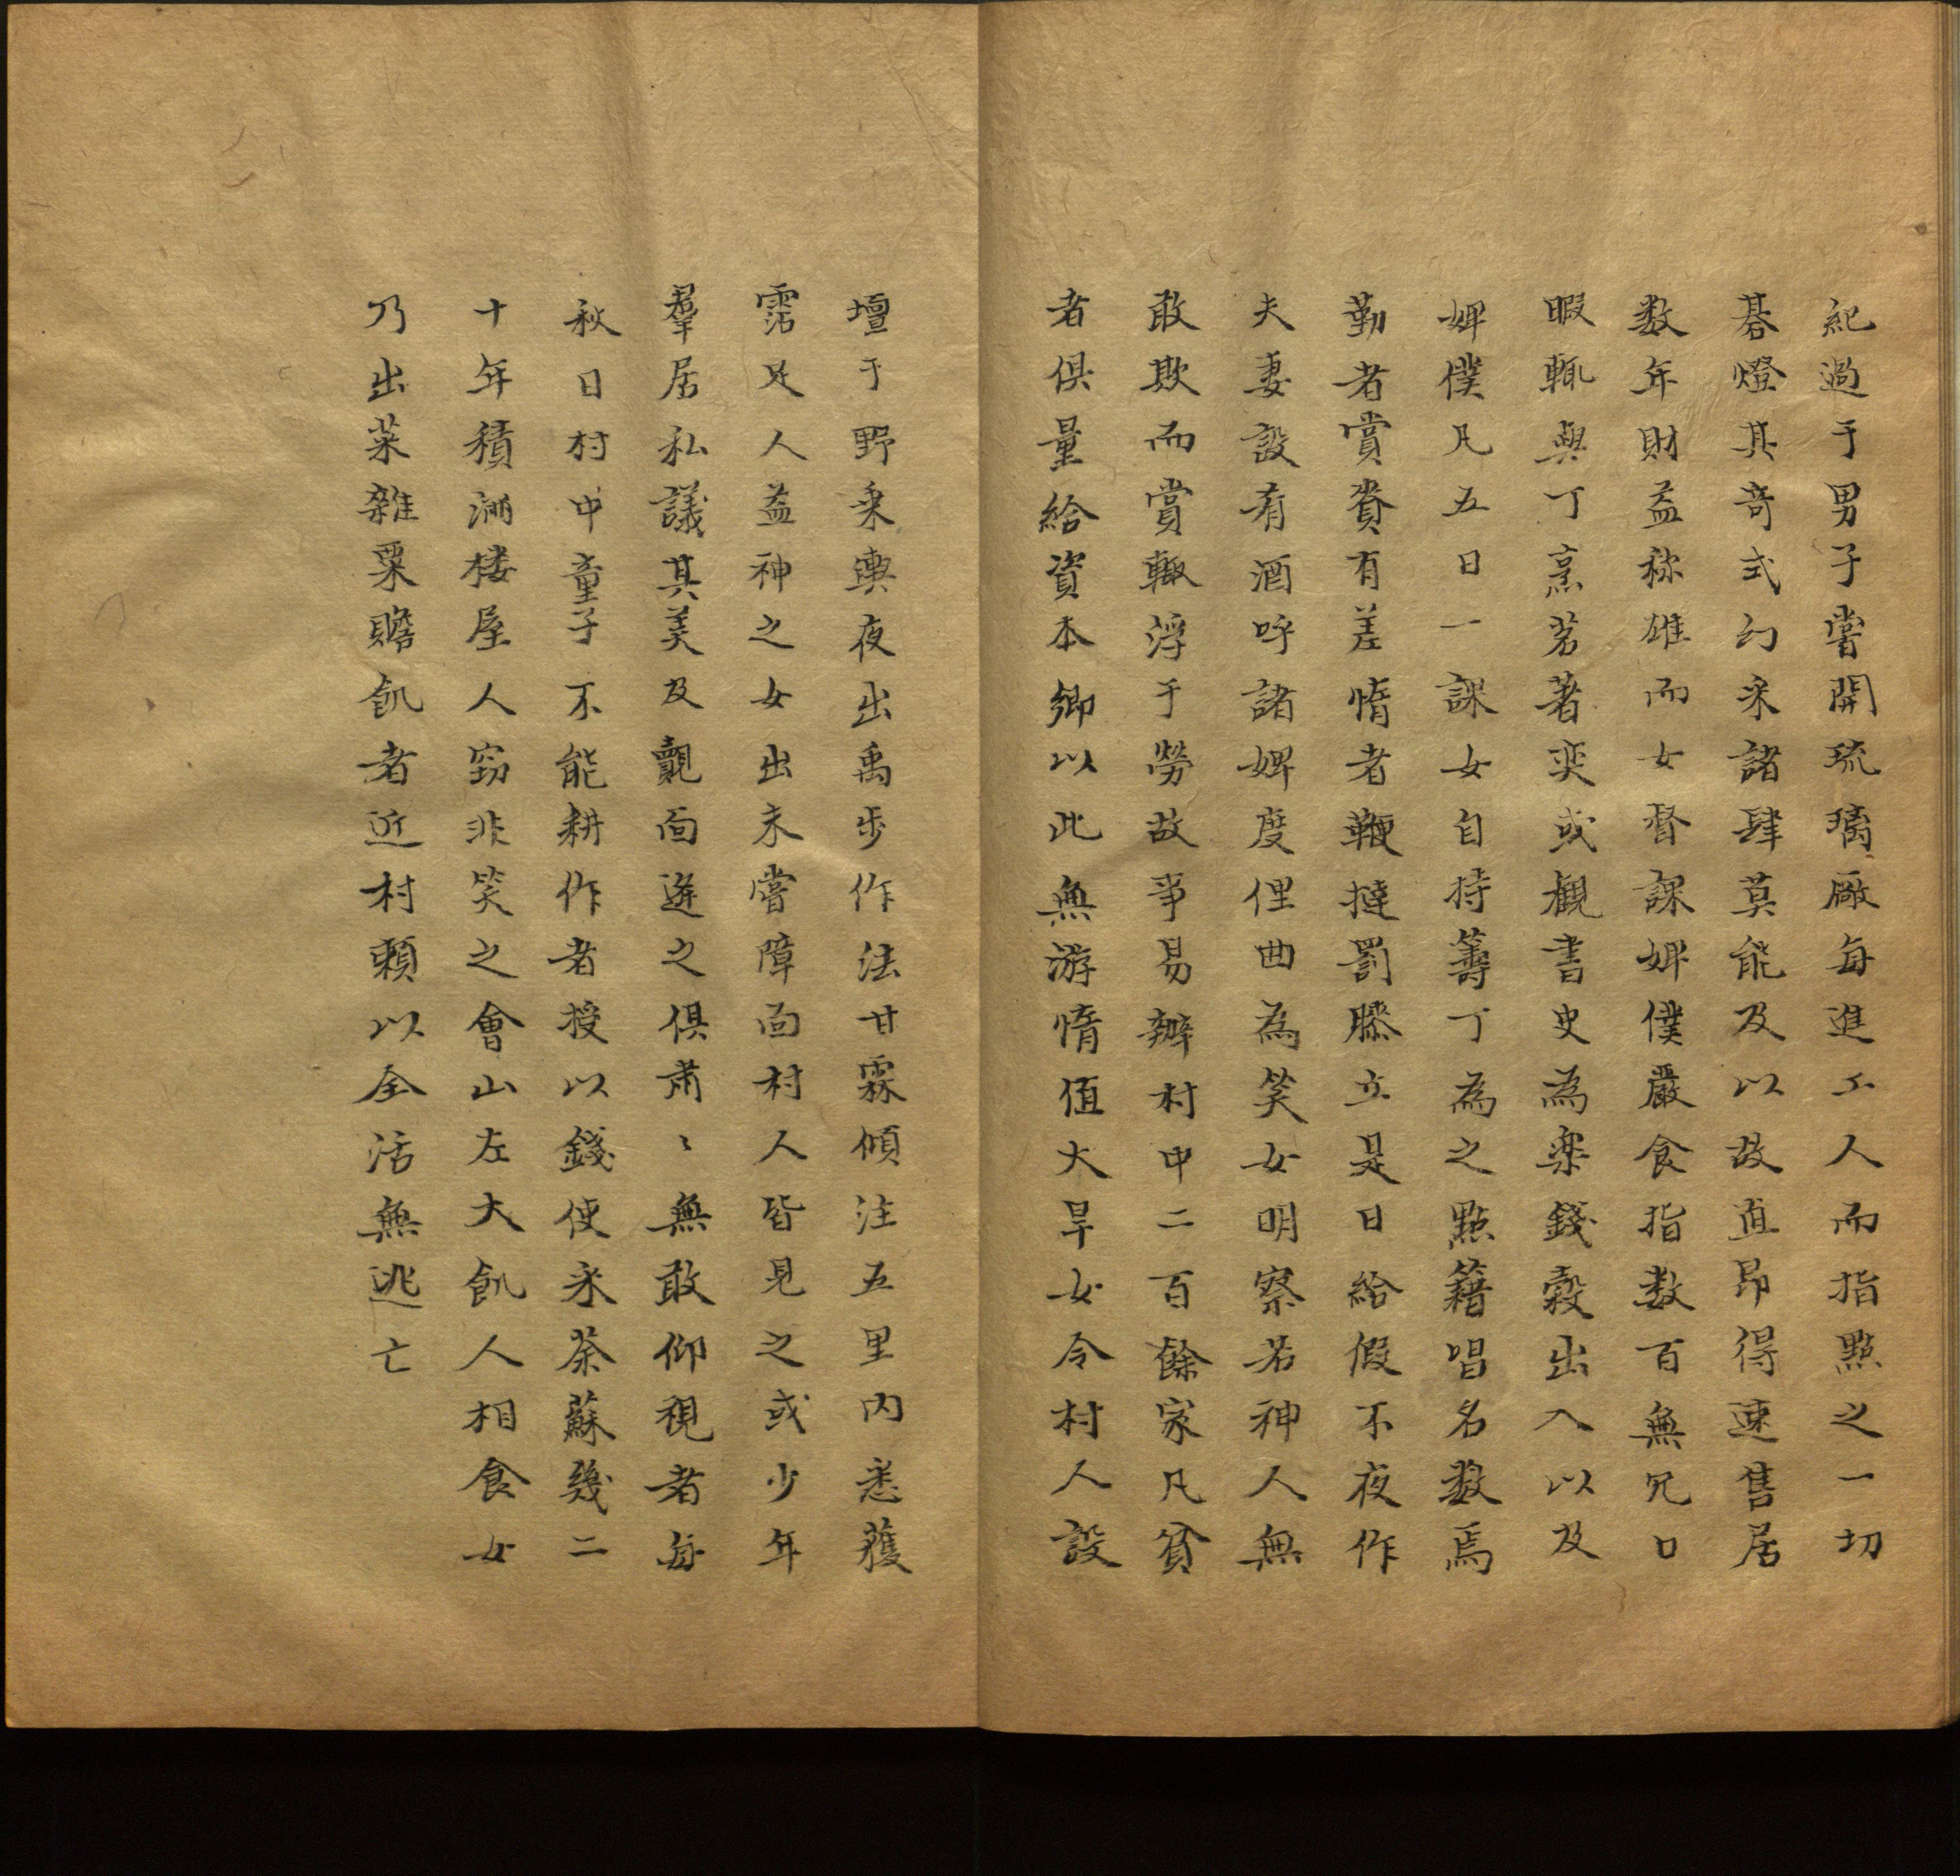 紀過于男子嘗開琉璃廠每進工人而指點之一切
碁燈其奇式幻采諸肆莫能及以故直昂得速售居
数年財益称雄而女督課婢僕嚴食指数百無冗口
暇輒與丁烹茗著奕或觀書史為楽錢穀出入以及
婢僕凡五日一課女自持籌丁為之點籍唱名数焉
勤者賞賚有差惰者鞭撻罰膝立是日給假不夜作
夫妻設肴酒呼諸婢度俚曲為笑女明察若神人無
敢欺而賞輙浮于勞故事易辦村中二百餘家凡貧
者俱量給資本鄉以此無游惰值大旱女令村人設
壇于野乘輿夜出禹步作法甘霖傾注五里内悉獲
霑足人益神之女出未嘗障面村人皆見之或少年
羣居私議其美及覿面逢之俱肅〻無敢仰視者每
秋日村中童子不能耕作者授以錢使采荼蘇幾二
十年積滿楼屋人窃非笑之會山左大飢人相食女
乃出菜雜粟贍飢者近村賴以全活無逃亡